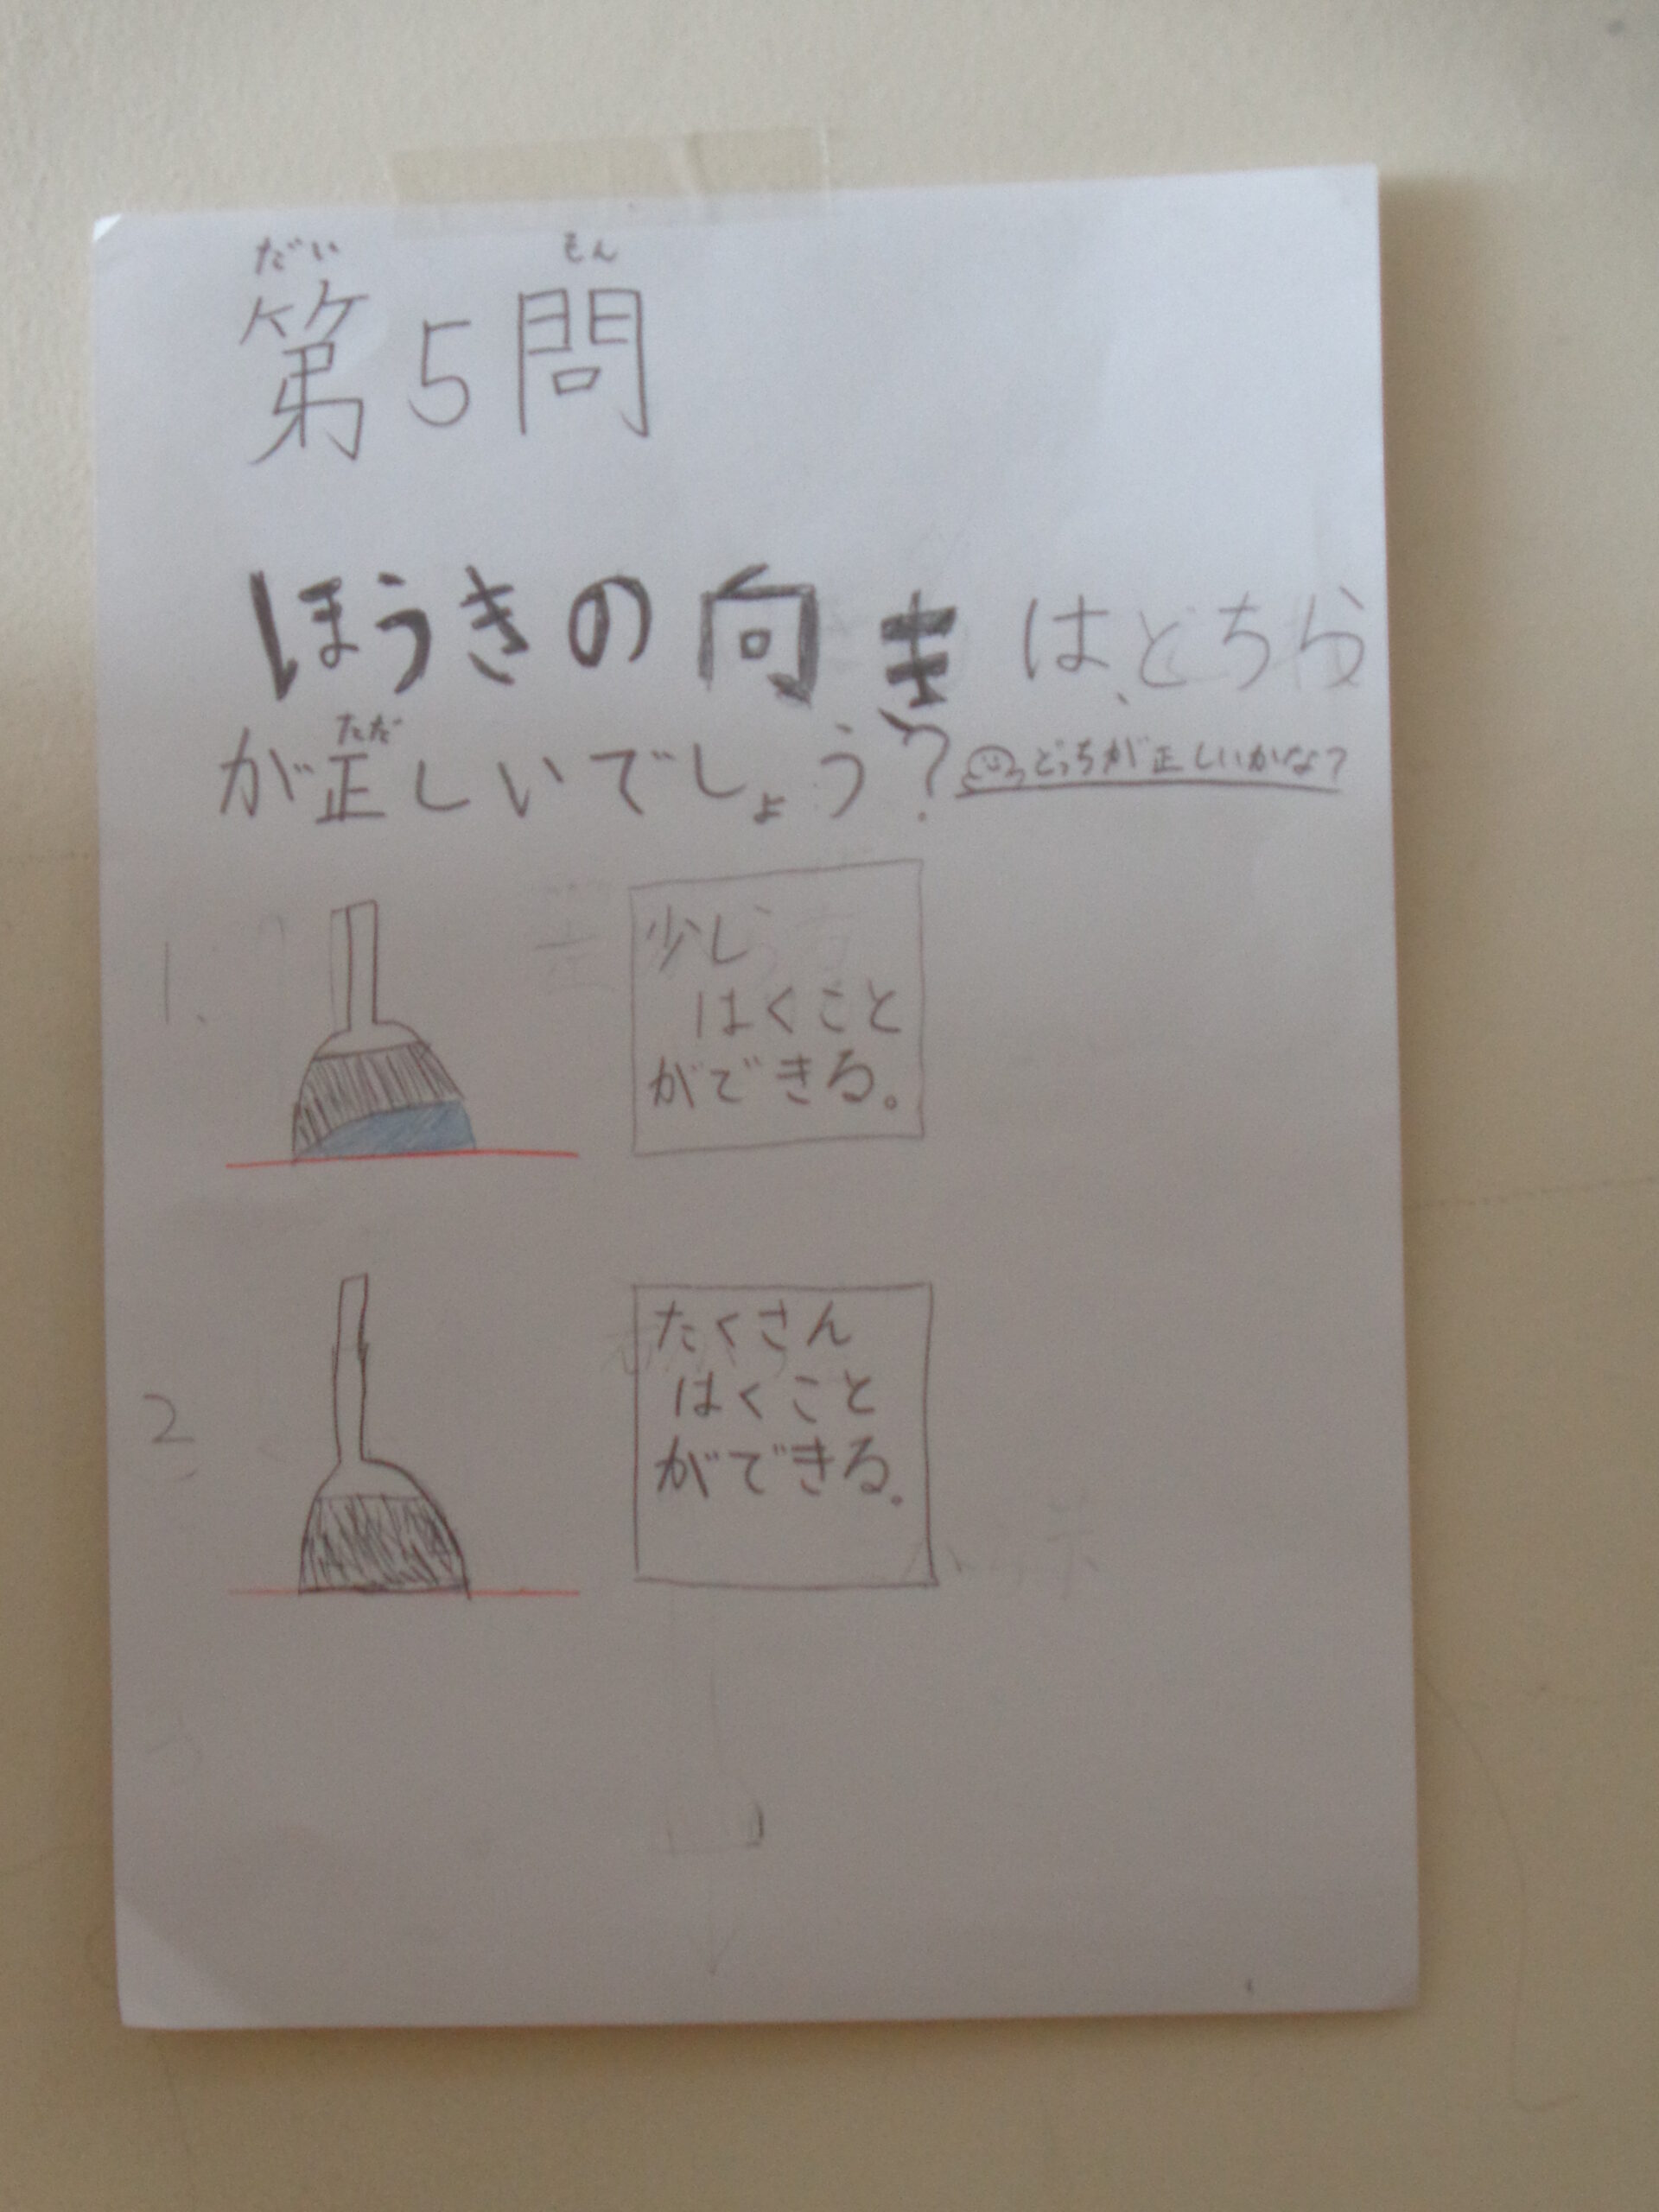 だい もん
第5問
ほうきの向きは、どちら
ただ
が正しいでしょう?
どっちが正しいかな?
1.
少し
はくこと
ができる。
2
たくさん
はくこと
ができる。